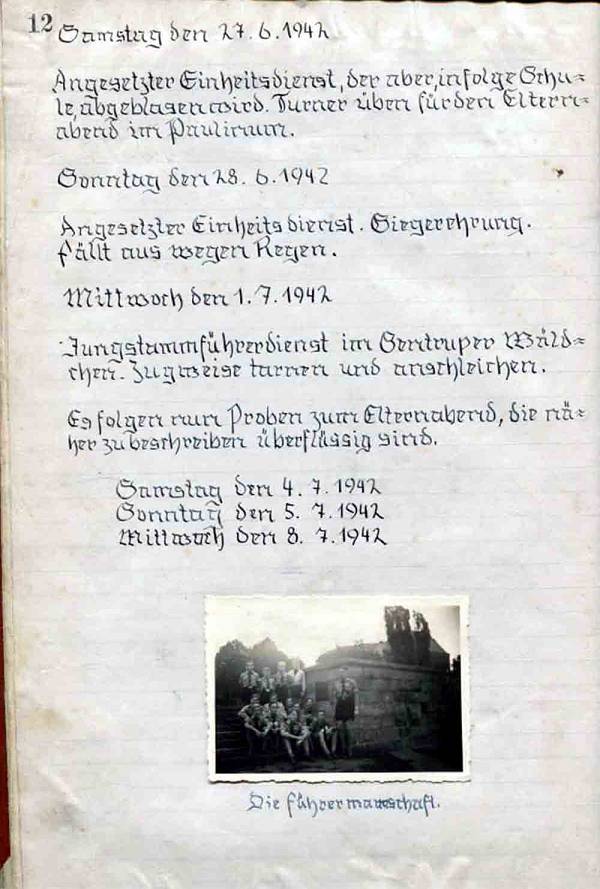 12
Samstag den 27.6.1942
Angesetzter Einheitsdienst, der aber, infolge Schu=
le, abgeblasen wird. Turner üben für den Eltern=
abend im Paulinum.
Sonntag den 28.6.1942
Angesetzter Einheitsdienst. Siegerehrung.
fällt aus wegen Regen.
Mittwoch den 1.7.1942
Jungstammführerdienst im Sentruper Wäld=
chen. Zugweise tarnen und anschleichen.
Es folgen nun Proben zum Elternabend, die nä=
her zu beschreiben überflüssig sind.
Samstag den 4.7.1942
Sonntag den 5.7.1942
Mittwoch den 8.7.1942
Die Führermannschaft.